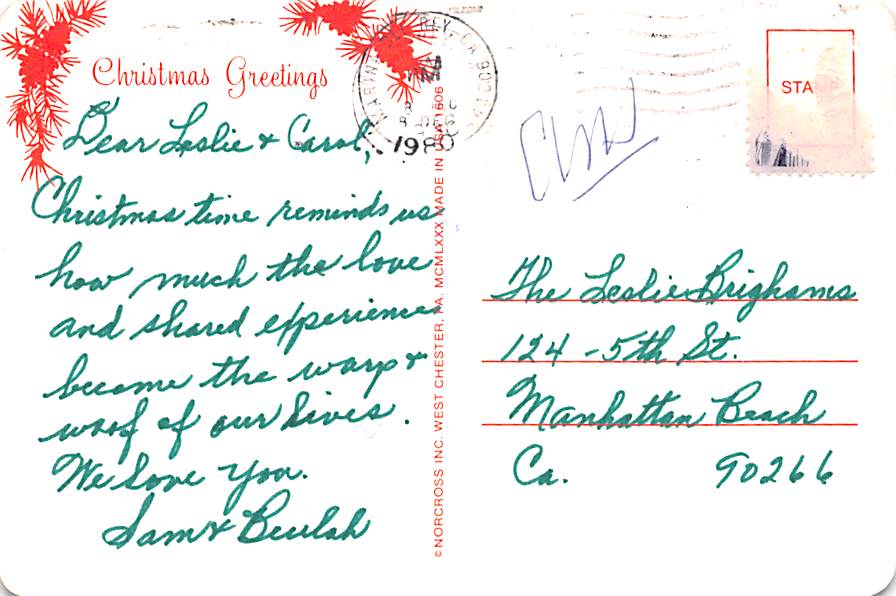 Christmas Greetings
Dear Leslie & Carol,
Christmas time reminds us
how much the love
and shared experiences
become the warp &
woof of our lives.
We love you.
Sam & Beulah
©NORCROSS INC. WEST CHESTER, PA. MCMLXXX MADE IN USA 1606
MARINA DEL REY, CA 902
PM
8 DEC
1980
STAMP
The Leslie Brighams
124 - 5th St.
Manhattan Beach
Ca. 90266